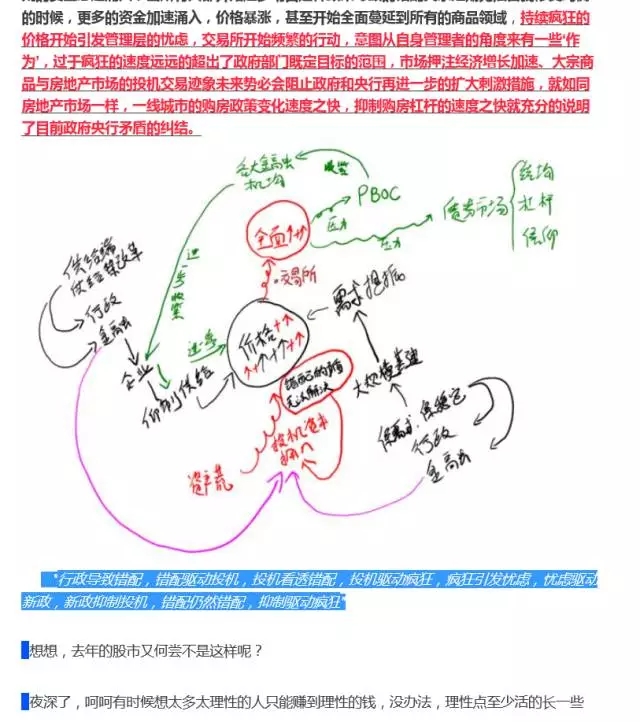 的时候，更多的资金加速涌入，价格暴涨，甚至开始全面蔓延到所有的商品领域，持续疯狂的
价格开始引发管理层的忧虑，交易所开始频繁的行动，意图从自身管理者的角度来有一些‘作
为’，过于疯狂的速度远远的超出了政府部门既定目标的范围，市场押注经济增长加速、大宗商
品与房地产市场的投机交易迹象未来势必会阻止政府和央行再进一步的扩大刺激措施，就如同
房地产市场一样，一线城市的购房政策变化速度之快，抑制购房杠杆的速度之快就充分的说明
了目前政府央行矛盾的纠结。
各大金融
机构
收紧
PBOC
债券市场
结构
杠杆
信仰
全面
压力
压力
交易所
供给端
行政
金融
进一步收紧
企业
抑制供给
进一步
价格
需求
大规模基建
错配的矛盾
无法解决
投机资本
拥入
资产荒
行政
金融
"行政导致错配，错配驱动投机，投机看透错配，投机驱动疯狂，疯狂引发忧虑，忧虑驱动
新政，新政抑制投机，错配仍然错配，抑制驱动疯狂"
想想，去年的股市又何尝不是这样呢？
夜深了，呵呵有时候想太多太理性的人只能赚到理性的钱，没办法，理性点至少活的长一些